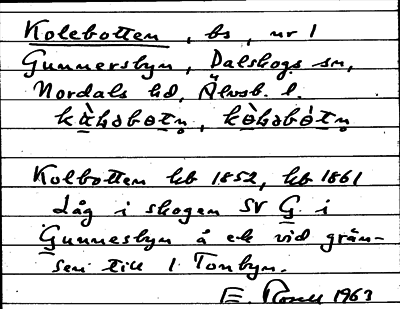 Kolebotten, bs, nr 1
Gunnersbyn, Dalskogs sn,
Nordals hd, Älvsb. l.
Kolbotten kb 1852, kb 1861
Låg i skogen SV G. i
Gunnesbyn å ek vid grän-
sen till 1 Tonbyn.
E. 1963